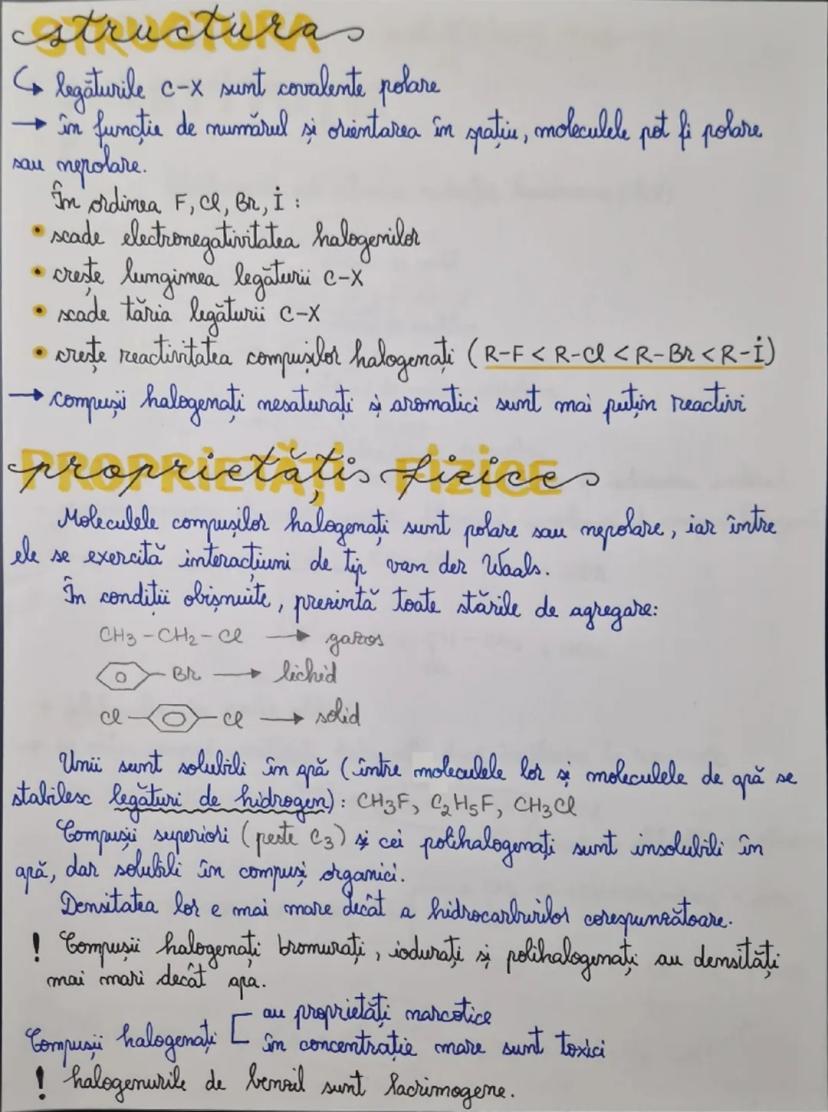 STRUCTURA
structura
↳ legăturile C-X sunt covalente polare
→ în funcție de numărul și orientarea în spațiu, moleculele pot fi polare
sau nepolare.
În ordinea F, Cl, Br, I :
• scade electronegativitatea halogenilor
• crește lungimea legăturii C-X
• scade tăria legăturii C-X
• crește reactivitatea compușilor halogenați (R-F < R-Cl < R-Br < R-I)
→ compușii halogenați nesaturați și aromatici sunt mai puțin reactivi
PROPRIETĂȚI FIZICE
proprietăți fizice
Moleculele compușilor halogenați sunt polare sau nepolare, iar între
ele se exercită interacțiuni de tip van der Waals.
În condiții obișnuite, prezintă toate stările de agregare:
CH3-CH2-Cl → gazos
-Br → lichid
Cl- -Cl → solid
Unii sunt solubili în apă (între moleculele lor și moleculele de apă se
stabilesc legături de hidrogen): CH3F, C2H5F, CH3Cl
Compușii superiori (peste C3) și cei polihalogenați sunt insolubili în
apă, dar solubili în compuși organici.
Densitatea lor e mai mare decât a hidrocarburilor corespunzătoare.
! Compușii halogenați bromurați, iodurați și polihalogenați au densități
mai mari decât apa.
Compușii halogenați [ au proprietăți narcotice
în concentrație mare sunt toxici
! halogenurile de benzil sunt lacrimogene.